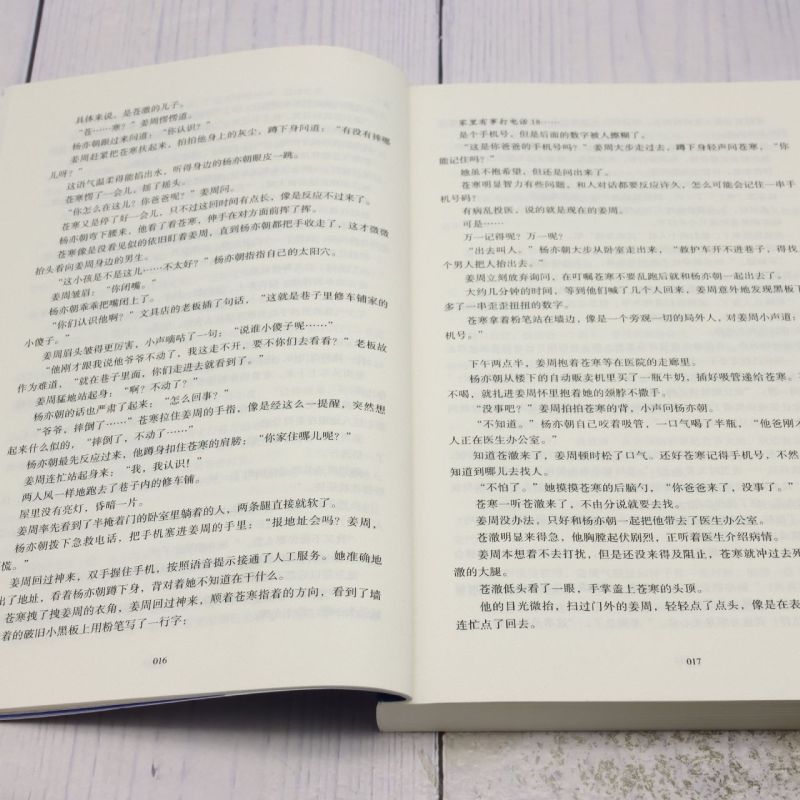 具体来说，是苍澈的儿子。
“苍……寒？”姜周愣愣道。
杨亦朝跟过来问道：“你认识？”
姜周赶紧把苍寒扶起来，拍拍他身上的灰尘，蹲下身问道：“有没有摔哪
儿呀？”
这语气温柔得能掐出水，听得身边的杨亦朝眼皮一跳。
苍寒愣了一会儿，摇了摇头。
“你怎么在这儿？你爸爸呢？”姜周问。
苍寒又是停了好一会儿，只不过这回时间有点长，像是反应不过来了。
杨亦朝弯下腰来，他看了看苍寒，伸手在对方面前挥了挥。
苍寒像是没看见似的依旧盯着姜周，直到杨亦朝都把手收走了，这才微微
抬头看向姜周身边的男生。
“这小孩是不是这儿……不太好？”杨亦朝指指自己的太阳穴。
姜周皱眉：“你闭嘴。”
杨亦朝乖乖把嘴闭上了。
“你们认识他啊？”文具店的老板插了句话，“这就是巷子里修车铺家的
小傻子。”
姜周眉头皱得更厉害，小声嘀咕了一句：“说谁小傻子呢……”
“他刚才跟我说他爷爷不动了，我这走不开，要不你们去看看？”老板故
作为难道，“就在巷子里面，你们走进去就看到了。”
姜周猛地站起身：“啊？不动了？”
杨亦朝的话也严肃了起来：“怎么回事？”
“爷爷，摔倒了……”苍寒拉住姜周的手指，像是经这么一提醒，突然想
起来什么似的，“摔倒了，不动了……”
杨亦朝最先反应过来，他蹲下身扣住苍寒的肩膀：“你家住哪儿呢？”
姜周连忙站起身来：“我，我认识！”
两人风一样地跑去了巷子内的修车铺。
屋里没有亮灯，昏暗一片。
姜周率先看到了半掩着门的卧室里躺着的人，两条腿直接就软了。
杨亦朝拨下急救电话，把手机塞进姜周的手里：“报地址会吗？姜周，
慌。”
姜周回过神来，双手握住手机，按照语音提示接通了人工服务。她准确地
出了地址，看着杨亦朝蹲下身，背对着她不知道在干什么。
苍寒拽了拽姜周的衣角，姜周回过神来，顺着苍寒指着的方向，看到了墙
着的破旧小黑板上用粉笔写了一行字：
016
家里有事打电话 18……
是个手机号，但是后面的数字被人擦糊了。
“这是你爸爸的手机号吗？”姜周大步走过去，蹲下身轻声问苍寒，“你
能记住吗？”
她虽不抱希望，但还是问出来了。
苍寒明显智力有些问题，和人对话都要反应许久，怎么可能会记住一串手
机号码？
有病乱投医，说的就是现在的姜周。
可是……
万一记得呢？万一呢？
“出去叫人。”杨亦朝大步从卧室走出来，“救护车开不进巷子，得找
个男人把人抬出去。”
姜周立刻放弃询问，在叮嘱苍寒不要乱跑后就和杨亦朝一起出去了。
大约几分钟的时间，等到他们喊了几个人回来，姜周意外地发现黑板下
多了一串歪歪扭扭的数字。
苍寒拿着粉笔站在墙边，像是一个旁观一切的局外人，对姜周小声道：
机号。”
下午两点半，姜周抱着苍寒等在医院的走廊里。
杨亦朝从楼下的自动贩卖机里买了一瓶牛奶，插好吸管递给苍寒。
不喝，就扎进姜周怀里抱着她的颈脖不撒手。
“没事吧？”姜周拍拍苍寒的背，小声问杨亦朝。
“不知道。”杨亦朝自己咬着吸管，一口气喝了半瓶，“他爸刚才
人正在医生办公室。”
知道苍澈来了，姜周顿时松了口气。还好苍寒记得手机号，不然
知道到哪儿去找人。
“不怕了。”她摸摸苍寒的后脑勺，“你爸爸来了，没事了。”
苍寒一听苍澈来了，不由分说就要去找。
姜周没办法，只好和杨亦朝一起把他带去了医生办公室。
苍澈明显来得急，他胸膛起伏剧烈，正听着医生介绍病情。
姜周本想着不去打扰，但是还没来得及阻止，苍寒就冲过去
澈的大腿。
苍澈低头看了一眼，手掌盖上苍寒的头顶。
他的目光微抬，扫过门外的姜周，轻轻点了点头，像是在表
连忙点了回去。
017